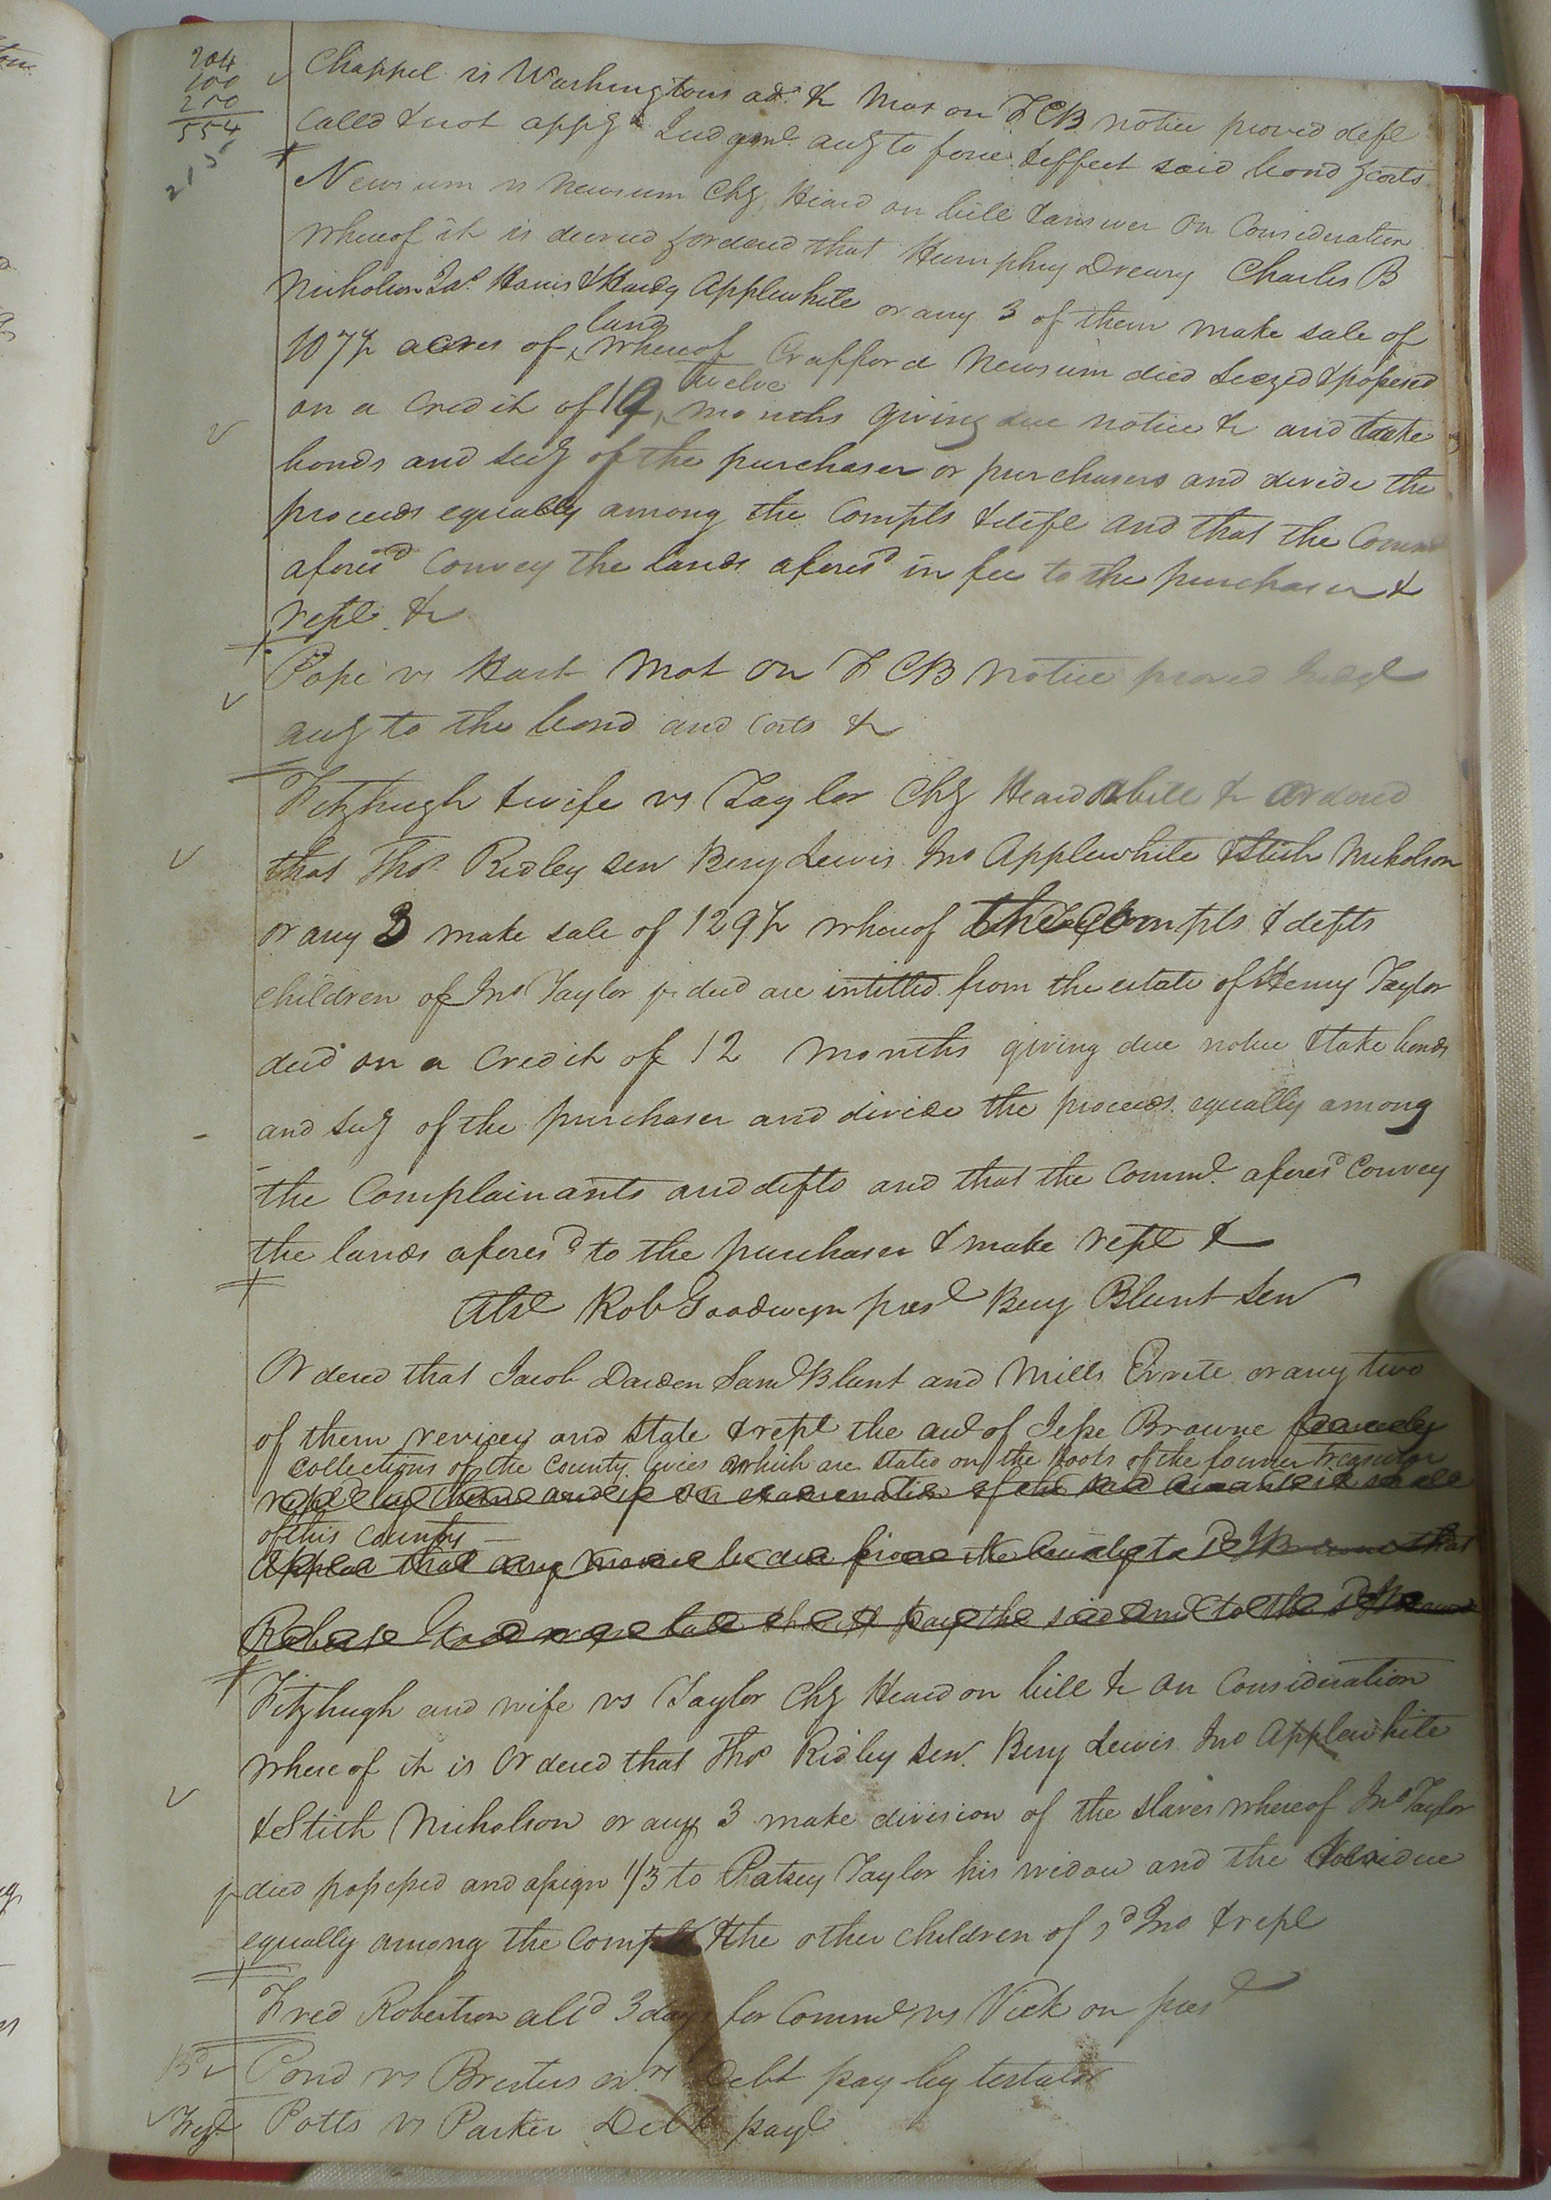 204
100
250
554
215
Chappel vs Washingtons adr &c Mot on F C B notice proved deft
Called & not appg Judgmt accg to force & effect said bond & costs
Newsum vs Newsum Chy Heard on bill & answer On Consideration
whereof it is decreed & ordered that Humphrey Drewry Charles B
Nicholson Jas Harris & Hardy Applewhite or any 3 of them make sale of
land
107½ acres of whereof Crafford Newsum died Seezed & possessed
twelve
on a Credit of 12 months giving due notice &c and take
bonds and secy of the purchaser or purchasers and divide the
proceeds equally among the Compts & deft and that the Comms
aforesd Convey the lands aforesd in fee to the purchaser &
rept &c
Pope vs Hart Mot on F C B notice proved Judgt
accg to the bond and costs &c
Fitzhugh & wife vs Taylor Chy Heard on bill &c ordered
that Thos Ridley Sen Benj Lewis Jno Applewhite & Stith Nicholson
or any 3 make sale of 129½ whereof the Compts & defts
children of Jno Taylor jr decd are intitled from the estate of Henry Taylor
decd on a Credit of 12 months giving due notice & take bonds
and secy of the purchaser and divide the proceeds equally among
the Complainants and defts and that the Commrs aforesd Convey
the lands aforesd to the purchaser & make rept &
Abst Rob Goodwyn prest Benj Blunt Sen
Ordered that Jacob Darden Saml Blunt and Mills Everete or any two
of them revise and state & rept the acct of Jesse Browne formerly
collections of the County levies which are stated on the books of the former treasurer
rept by them and if on examination of the said accounts it shall
of this County
appear that any money be due from the County to sd J Browne that
Robert Goodwyn late sheriff pay the said amt to the sd Jesse Browne
Fitzhugh and wife vs Taylor Chy Heard on bill &c On Consideration
whereof it is Ordered that Thos Ridley Sen. Benj Lewis Jno Applewhite
& Stith Nicholson or any 3 make division of the slaves whereof Jno Taylor
jr died possessed and assign 1/3 to Patsey Taylor his widow and the residue
equally among the Compts & the other children of sd Jno & rept
Fred Robertson alld 3 days for Commth vs Vick on prest
Pond vs Bristers exr Debt pay by testator
Potts vs Parker Debt payt